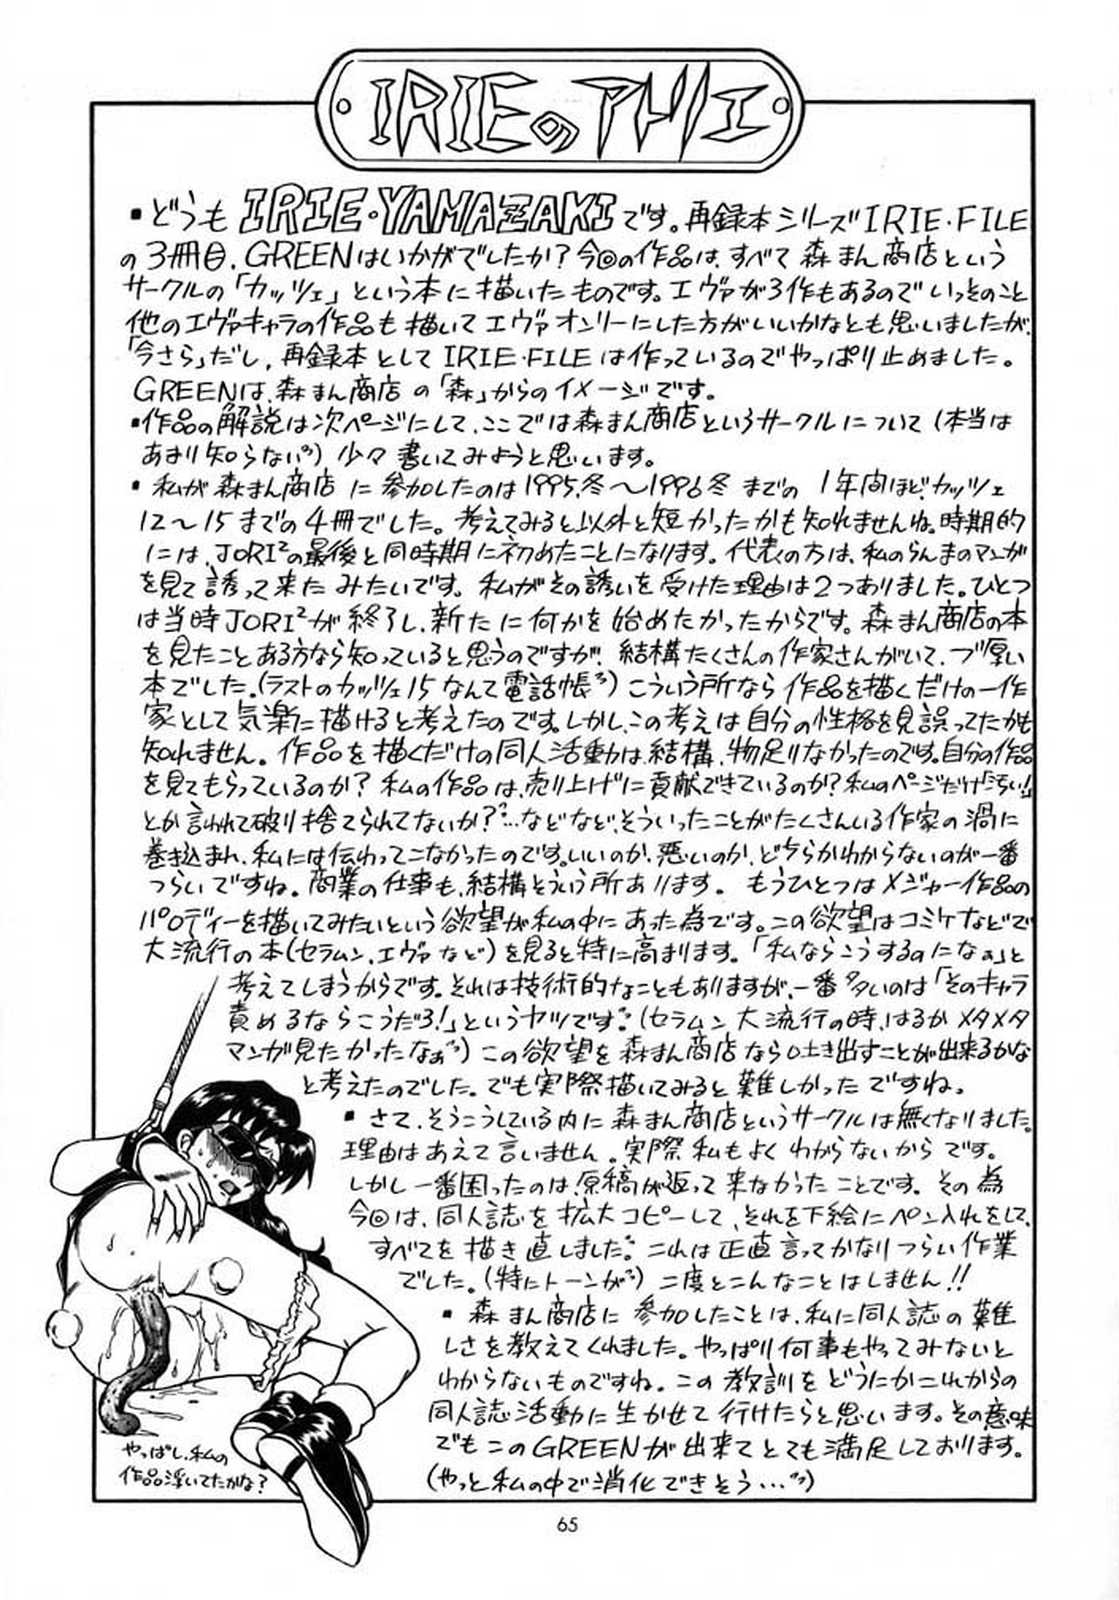 IRIEのアトリエ
▪どうもIRIE・YAMAZAKIです。再録本シリーズIRIE・FILE
の3冊目、GREENはいかがでしたか？今回の作品は、すべて森まん商店という
サークルの「カッツェ」という本に描いたものです。エヴァが3作もあるのでいっそのこと
他のエヴァキャラの作品も描いてエヴァオンリーにした方がいいかなとも思いましたが、
「今さら」だし、再録本としてIRIE・FILEは作っているのでやっぱり止めました。
GREENは、森まん商店の「森」からのイメージです。
▪作品の解説は次ページにして、ここでは森まん商店というサークルについて(本当は
あまり知らない)少々書いてみようと思います。
▪私が森まん商店に参加したのは1995.冬〜1996冬までの1年間ほど、カッツェ
12〜15までの4冊でした。考えてみると以外と短かったかも知れませんね。時期的
には、JORI²の最後と同時期に初めたことになります。代表の方は、私のらんまのマンガ
を見て誘って来たみたいです。私がその誘いを受けた理由は2つありました。ひとつ
は当時JORI²が終了し、新たに何かを始めたかったからです。森まん商店の本
を見たことある方なら知っていると思うのですが、結構たくさんの作家さんがいて、ブ厚い
本でした。(ラストのカッツェ15なんて電話帳)こういう所なら作品を描くだけの一作
家として気楽に描けると考えたのです。しかし、この考えは自分の性格を見誤ってたかも
知れません。作品を描くだけの同人活動は、結構、物足りなかったのです。自分の作品
を見てもらっているのか？私の作品は、売り上げに貢献できているのか？私のページだけ「汚い!」
とか言われて破り捨てられてないか？…などなど、そういったことがたくさんいる作家の渦に
巻き込まれ、私には伝わってこなかったのです。いいのか、悪いのか、どちらかわからないのが一番
つらいですね。商業の仕事も、結構そういう所あります。もうひとつはメジャー作品の
パロディーを描いてみたいという欲望が私の中にあった為です。この欲望はコミケなどで
大流行の本(セラムン、エヴァなど)を見ると特に高まります。「私ならこうするのになぁ」と
考えてしまうからです。それは技術的なこともありますが、一番多いのは「そのキャラ
責めるならこうだろ!」というヤツです。(セラムン大流行の時、はるかメタメタ
マンガ見たかったなぁ)この欲望を森まん商店なら吐き出すことが出来るかな
と考えたのでした。でも実際描いてみると難しかったですね。
▪さて、そうこうしている内に森まん商店というサークルは無くなりました。
理由はあえて言いません。実際私もよくわからないからです。
しかし一番困ったのは、原稿が返って来なかったことです。その為
今回は、同人誌を拡大コピーして、それを下絵にペン入れをして、
すべてを描き直しました。これは正直言ってかなりつらい作業
でした。(特にトーンが)二度とこんなことはしません!!
▪森まん商店に参加したことは、私に同人誌の難
しさを教えてくれました。やっぱり何事もやってみないと
わからないものですね。この教訓をどうにかこれからの
同人誌活動に生かせて行けたらと思います。その意味
でもこのGREENが出来てとても満足しております。
(やっと私の中で消化できそう…)
やっぱし、私の
作品浮いてたかな？
65